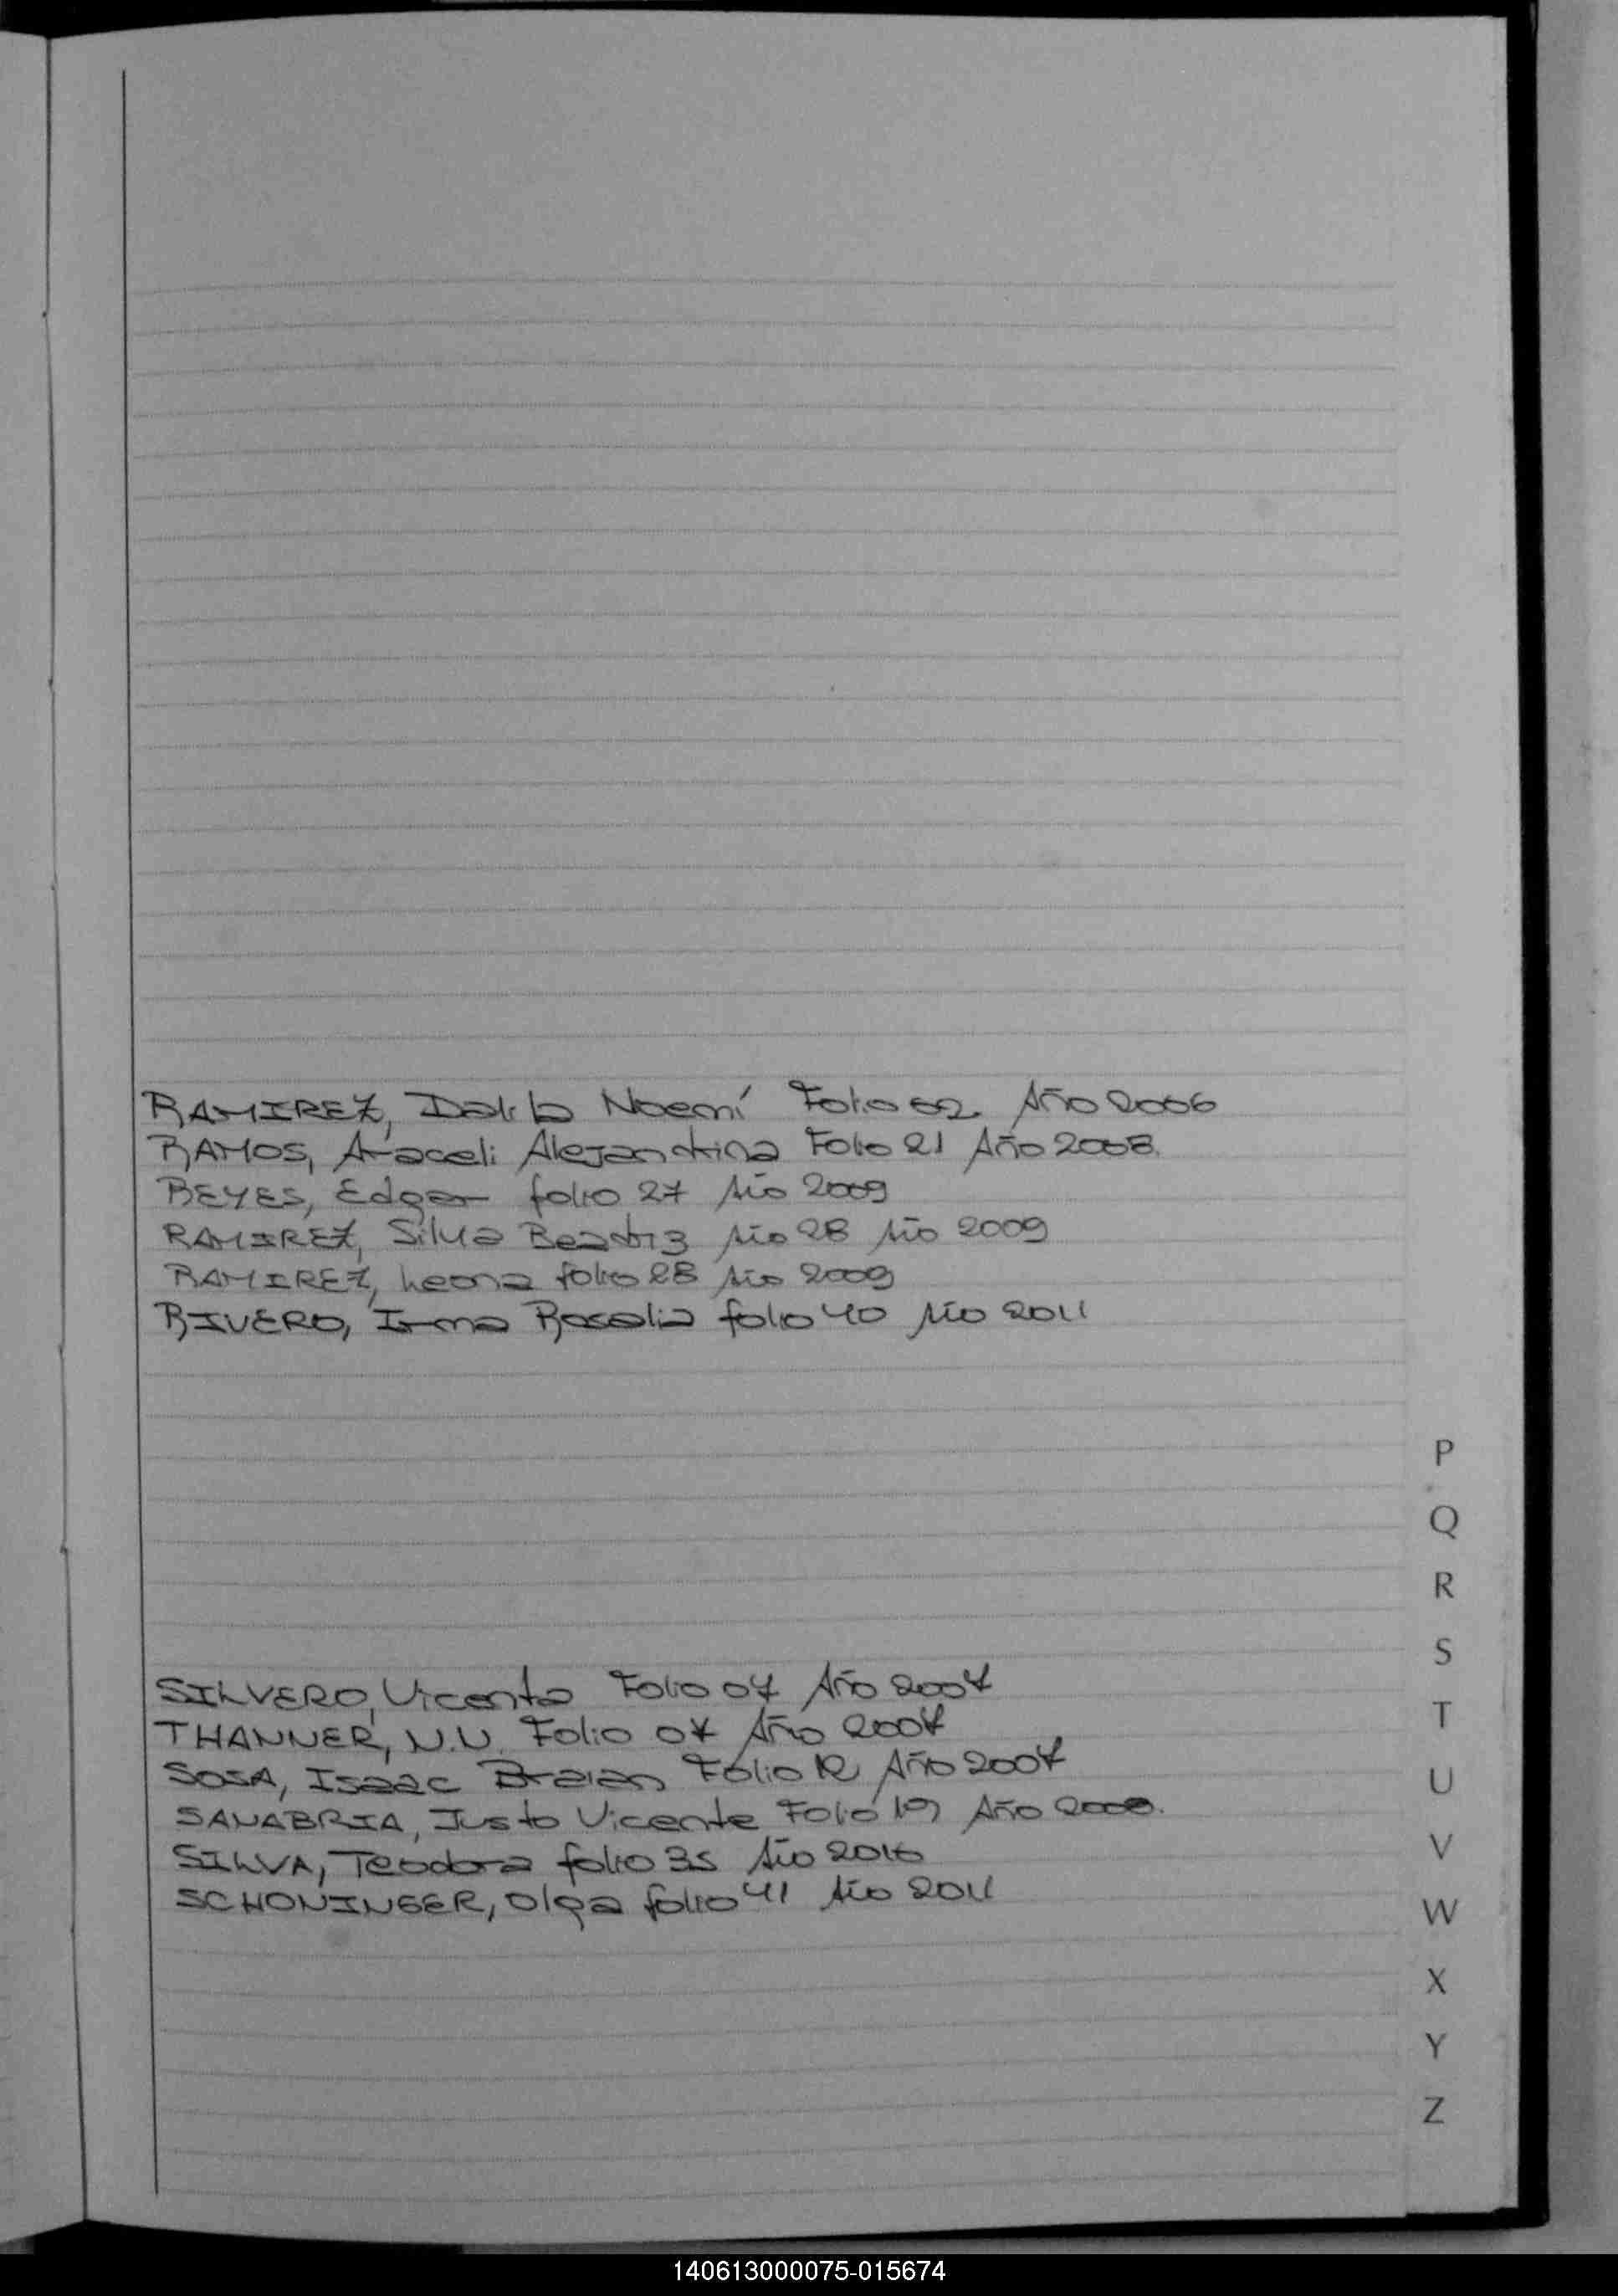 RAMIREZ, Dalila Noemí Folio 02 Año 2006
RAMOS, Araceli Alejandrina Folio 21 Año 2008.
REYES, Edgar folio 27 Año 2009
RAMIREZ, Silvia Beatriz Año 28 Año 2009
RAMIREZ, Leona folio 28 Año 2009
RIVERO, Irma Rosalia folio 40 Año 2011
P
Q
R
S
SILVERO, Vicenta Folio 07 Año 2007
T
THANNER, N.N. Folio 07 Año 2007
SOSA, Isaac Braian Folio 12 Año 2007
U
SANABRIA, Justo Vicente Folio 19 Año 2008.
V
SILVA, Teodora folio 35 Año 2010
SCHONINGER, Olga folio 41 Año 2011
W
X
Y
Z
140613000075-015674